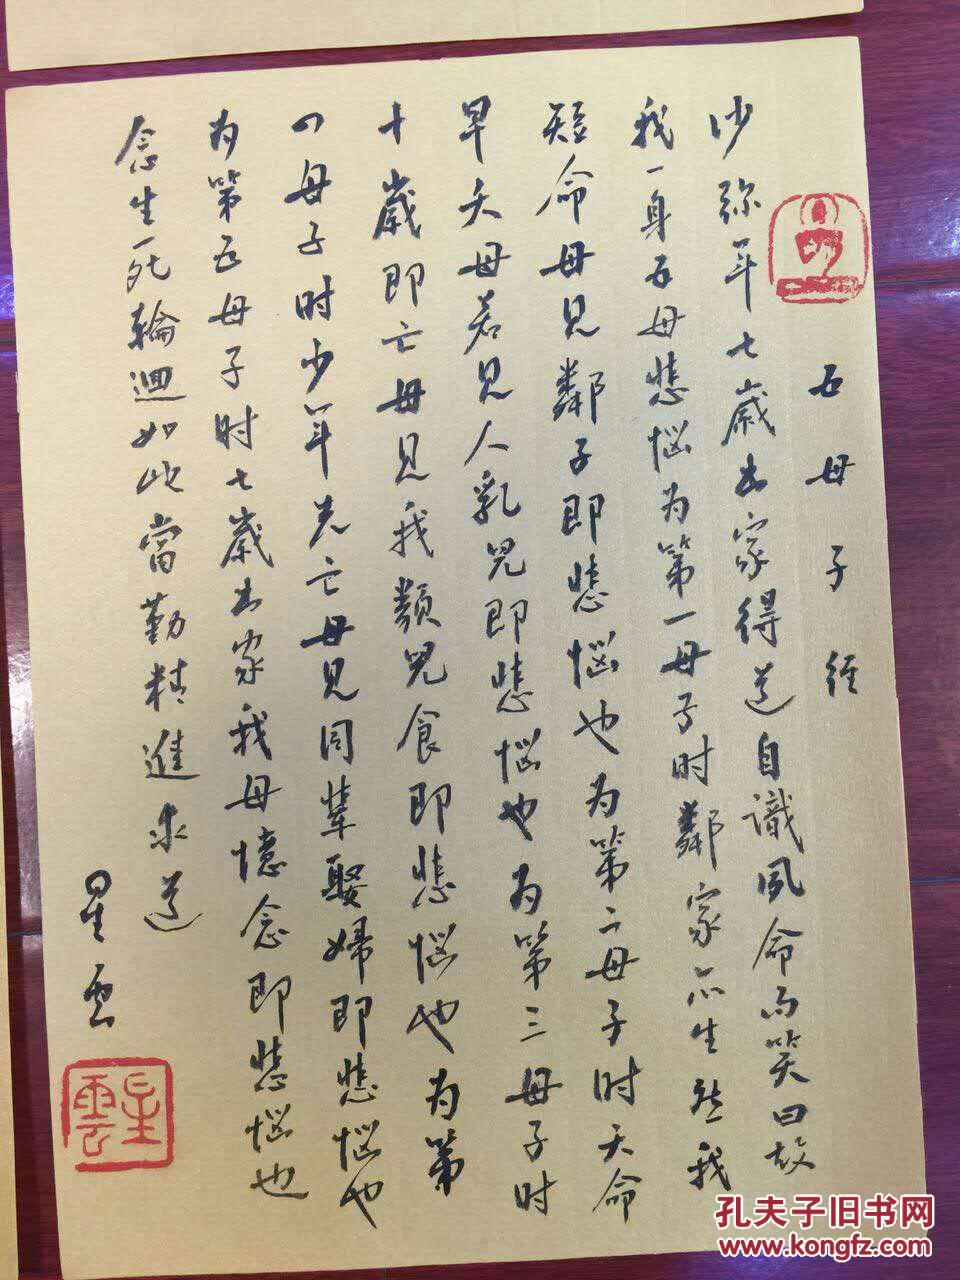 五母子经
沙弥年七歲出家得道自識夙命而笑曰故
我一身五母悲惱为第一母子时鄰家亦生然我
短命母見鄰子即悲惱也为第二母子时夭命
早夭母若見人乳兒即悲惱也为第三母子时
十歲即亡母見我類兒食即悲惱也为第
四母子时少年先亡母見同輩娶婦即悲惱也
为第五母子时七歲出家我母憶念即悲惱也
念生死輪迴如此當勤精進求道
星雲
星雲
孔夫子旧书网
www.kongfz.com